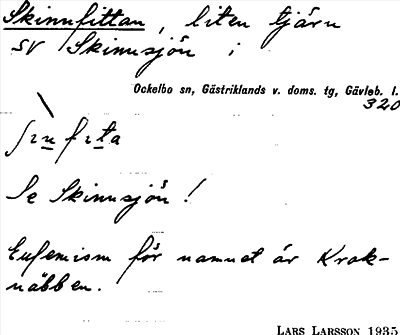 Skinnfittan, liten tjärn
SV Skinnsjön i
Ockelbo sn, Gästriklands v. doms. tg, Gävleb. l.
320
ʃɪn fɪta
Se Skinnsjön!
Eufemism för namnet är Krok-
näbben.
LARS LARSSON 1935